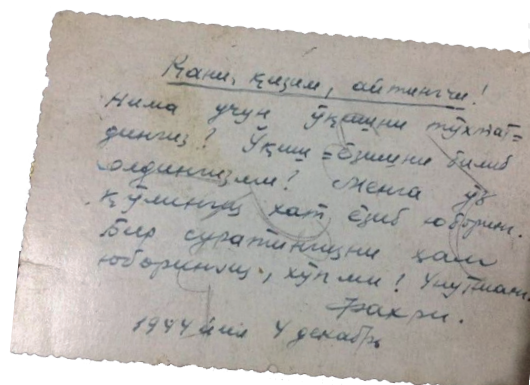 Қани, қизим, айтингчи!
Нима учун ўқишни тўхтат=
дингиз? Ўқиш=ёзишни билиб
олдингизми? Менга ўз
қўлингиз хат ёзиб юборинг.
Бир суратингизни ҳам
юборингиз, хўпми!
Фахри.
1944 йил 4 декабрь